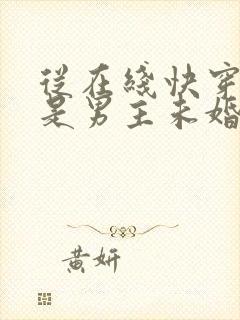 從在綫快穿
是男主未婚
黄妍